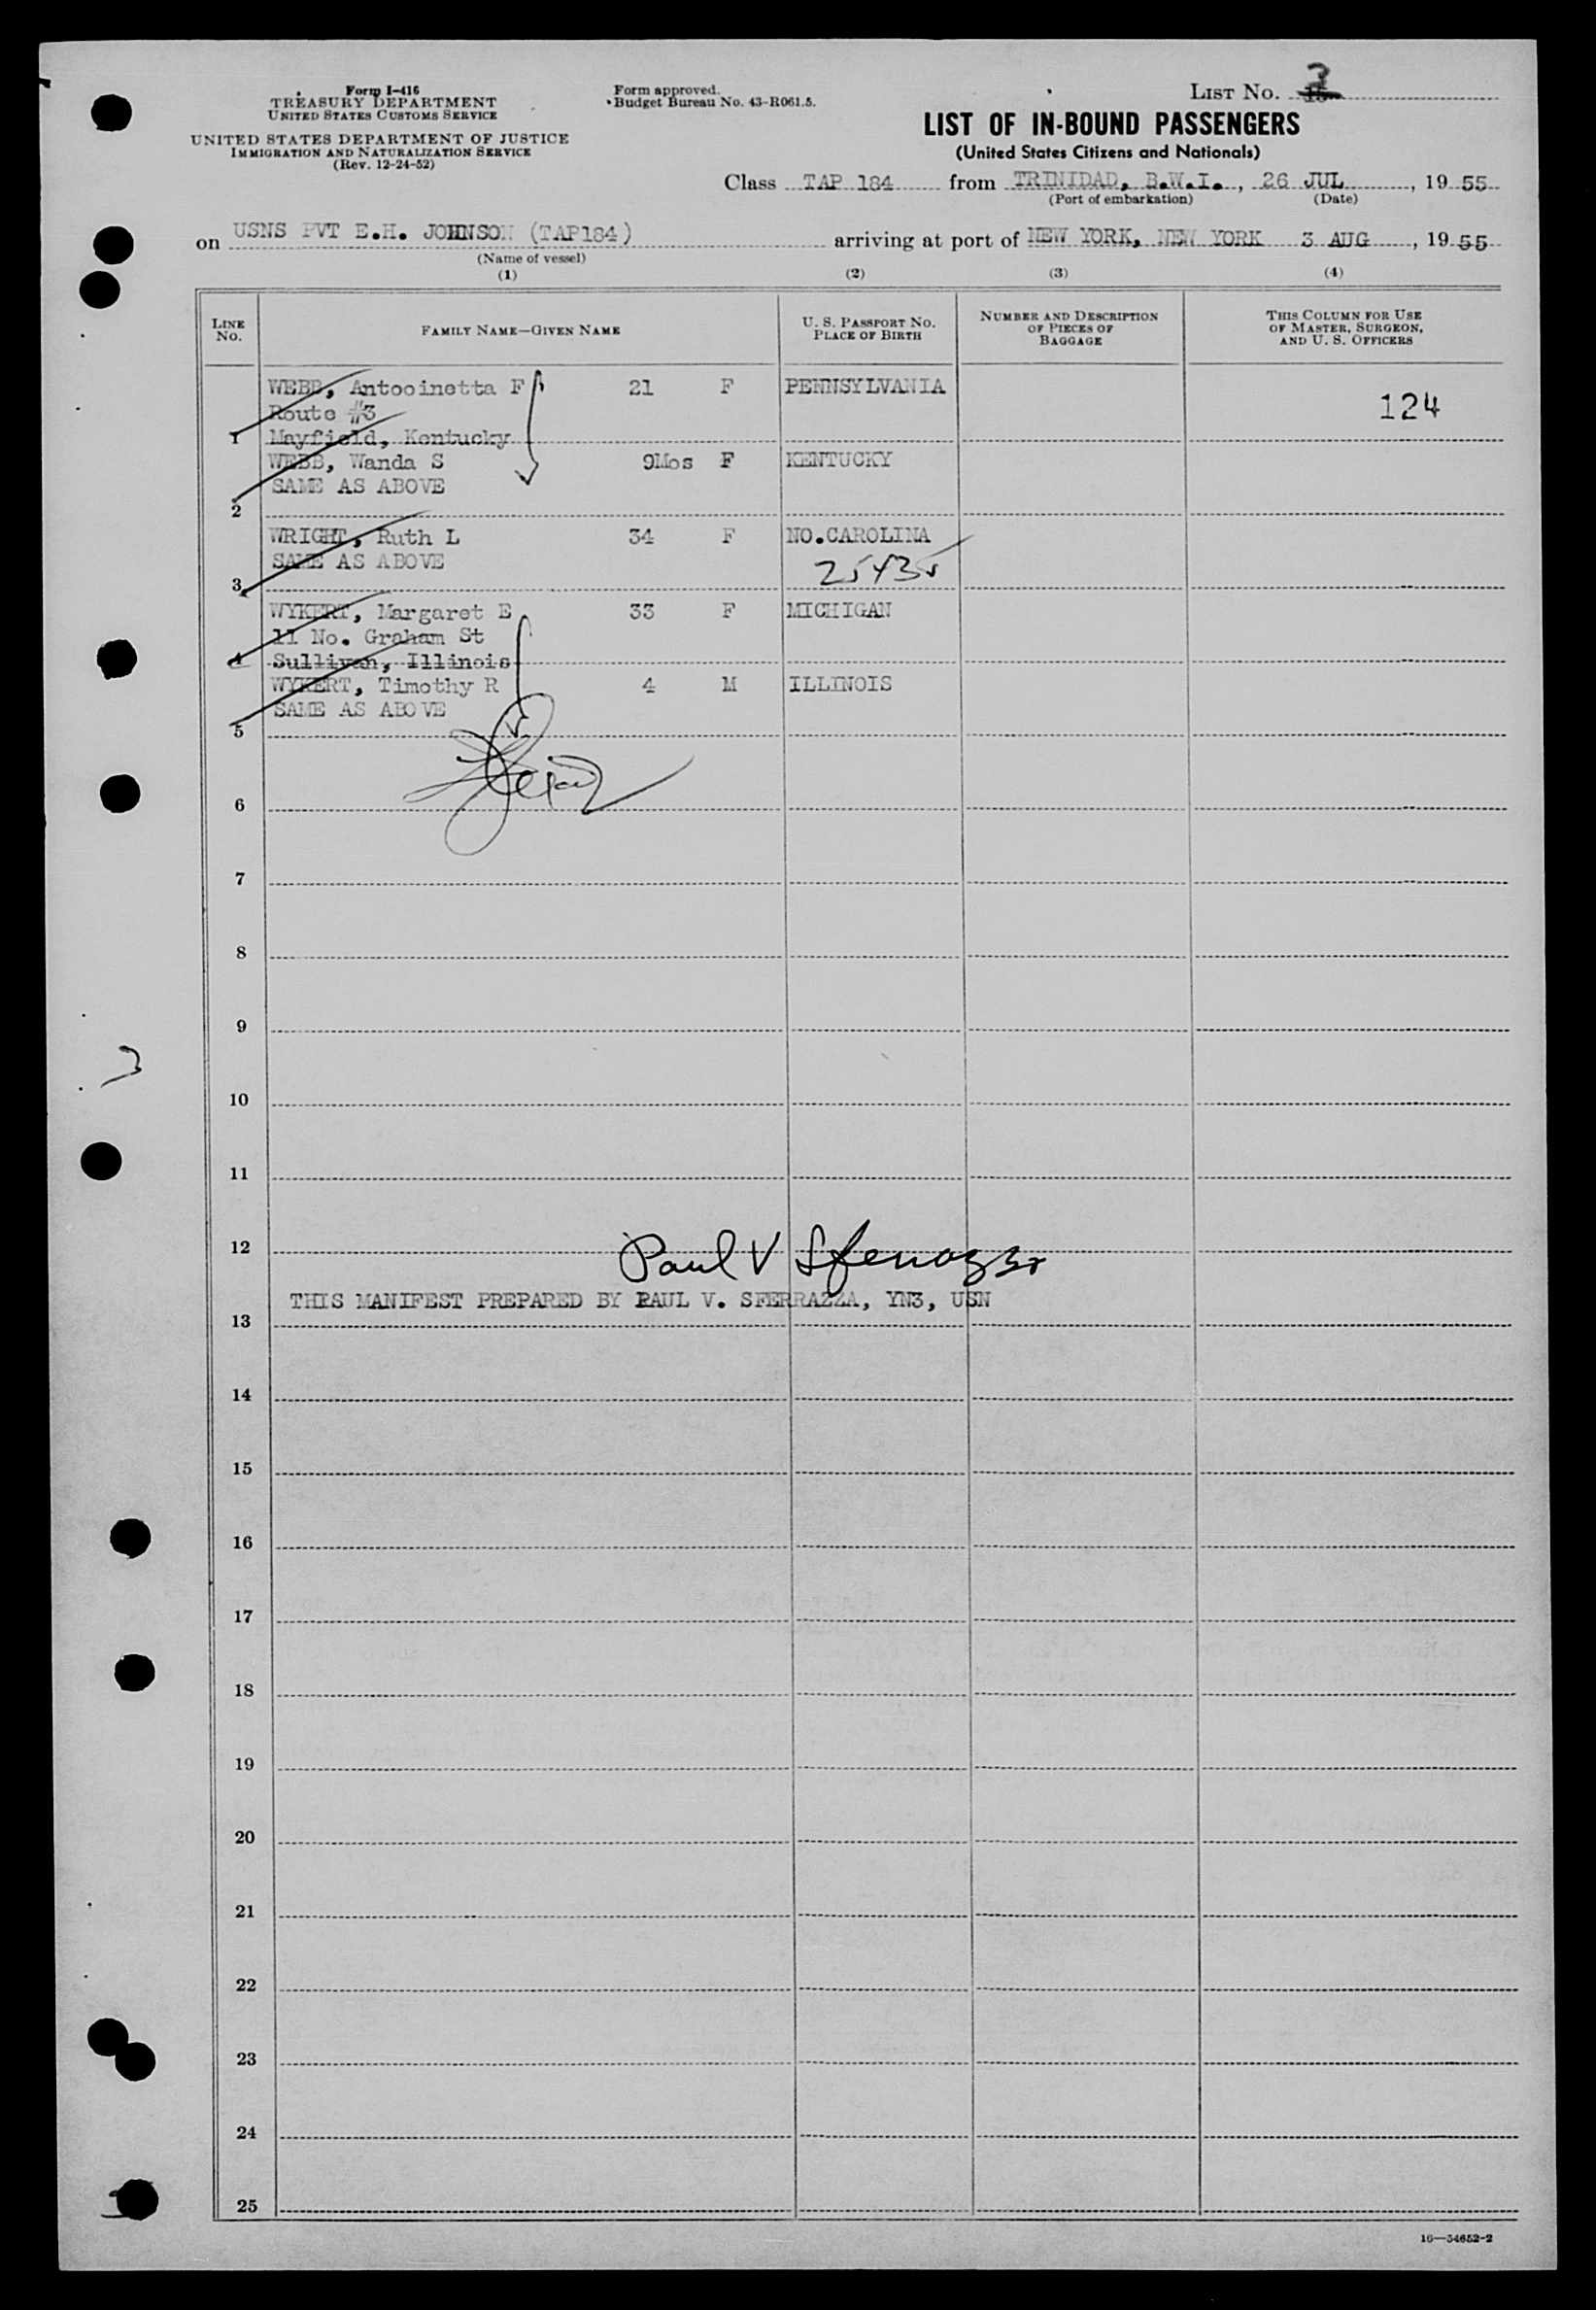 Form I-416
TREASURY DEPARTMENT
UNITED STATES CUSTOMS SERVICE
UNITED STATES DEPARTMENT OF JUSTICE
IMMIGRATION AND NATURALIZATION SERVICE
(Rev. 12-24-52)
Form approved.
Budget Bureau No. 43-R061.5.
LIST NO. 3
LIST OF IN-BOUND PASSENGERS
(United States Citizens and Nationals)
Class TAP 184 from TRINIDAD, B.W.I., 26 JUL, 19 55
(Port of embarkation) (Date)
on USNS PVT E.H. JOHNSON (TAP184) arriving at port of NEW YORK, NEW YORK 3 AUG, 19 55
(Name of vessel)
(1) (2) (3) (4)
LINE NO. FAMILY NAME—GIVEN NAME U. S. PASSPORT NO. PLACE OF BIRTH NUMBER AND DESCRIPTION OF PIECES OF BAGGAGE THIS COLUMN FOR USE OF MASTER, SURGEON, AND U. S. OFFICERS
WEBB, Antooinetta F 21 F PENNSYLVANIA 124
Route #3
1 Mayfield, Kentucky
WEBB, Wanda S 9Mos F KENTUCKY
SAME AS ABOVE
2
WRIGHT, Ruth L 34 F NO.CAROLINA
SAME AS ABOVE 25435
3
WYKERT, Margaret E 33 F MICHIGAN
11 No. Graham St
4 Sullivan, Illinois
WYKERT, Timothy R 4 M ILLINOIS
SAME AS ABOVE
5
6
7
8
9
3
10
11
12 Paul V Sferrazza
THIS MANIFEST PREPARED BY PAUL V. SFERRAZZA, YN3, USN
13
14
15
16
17
18
19
20
21
22
23
24
25
16—54652-2